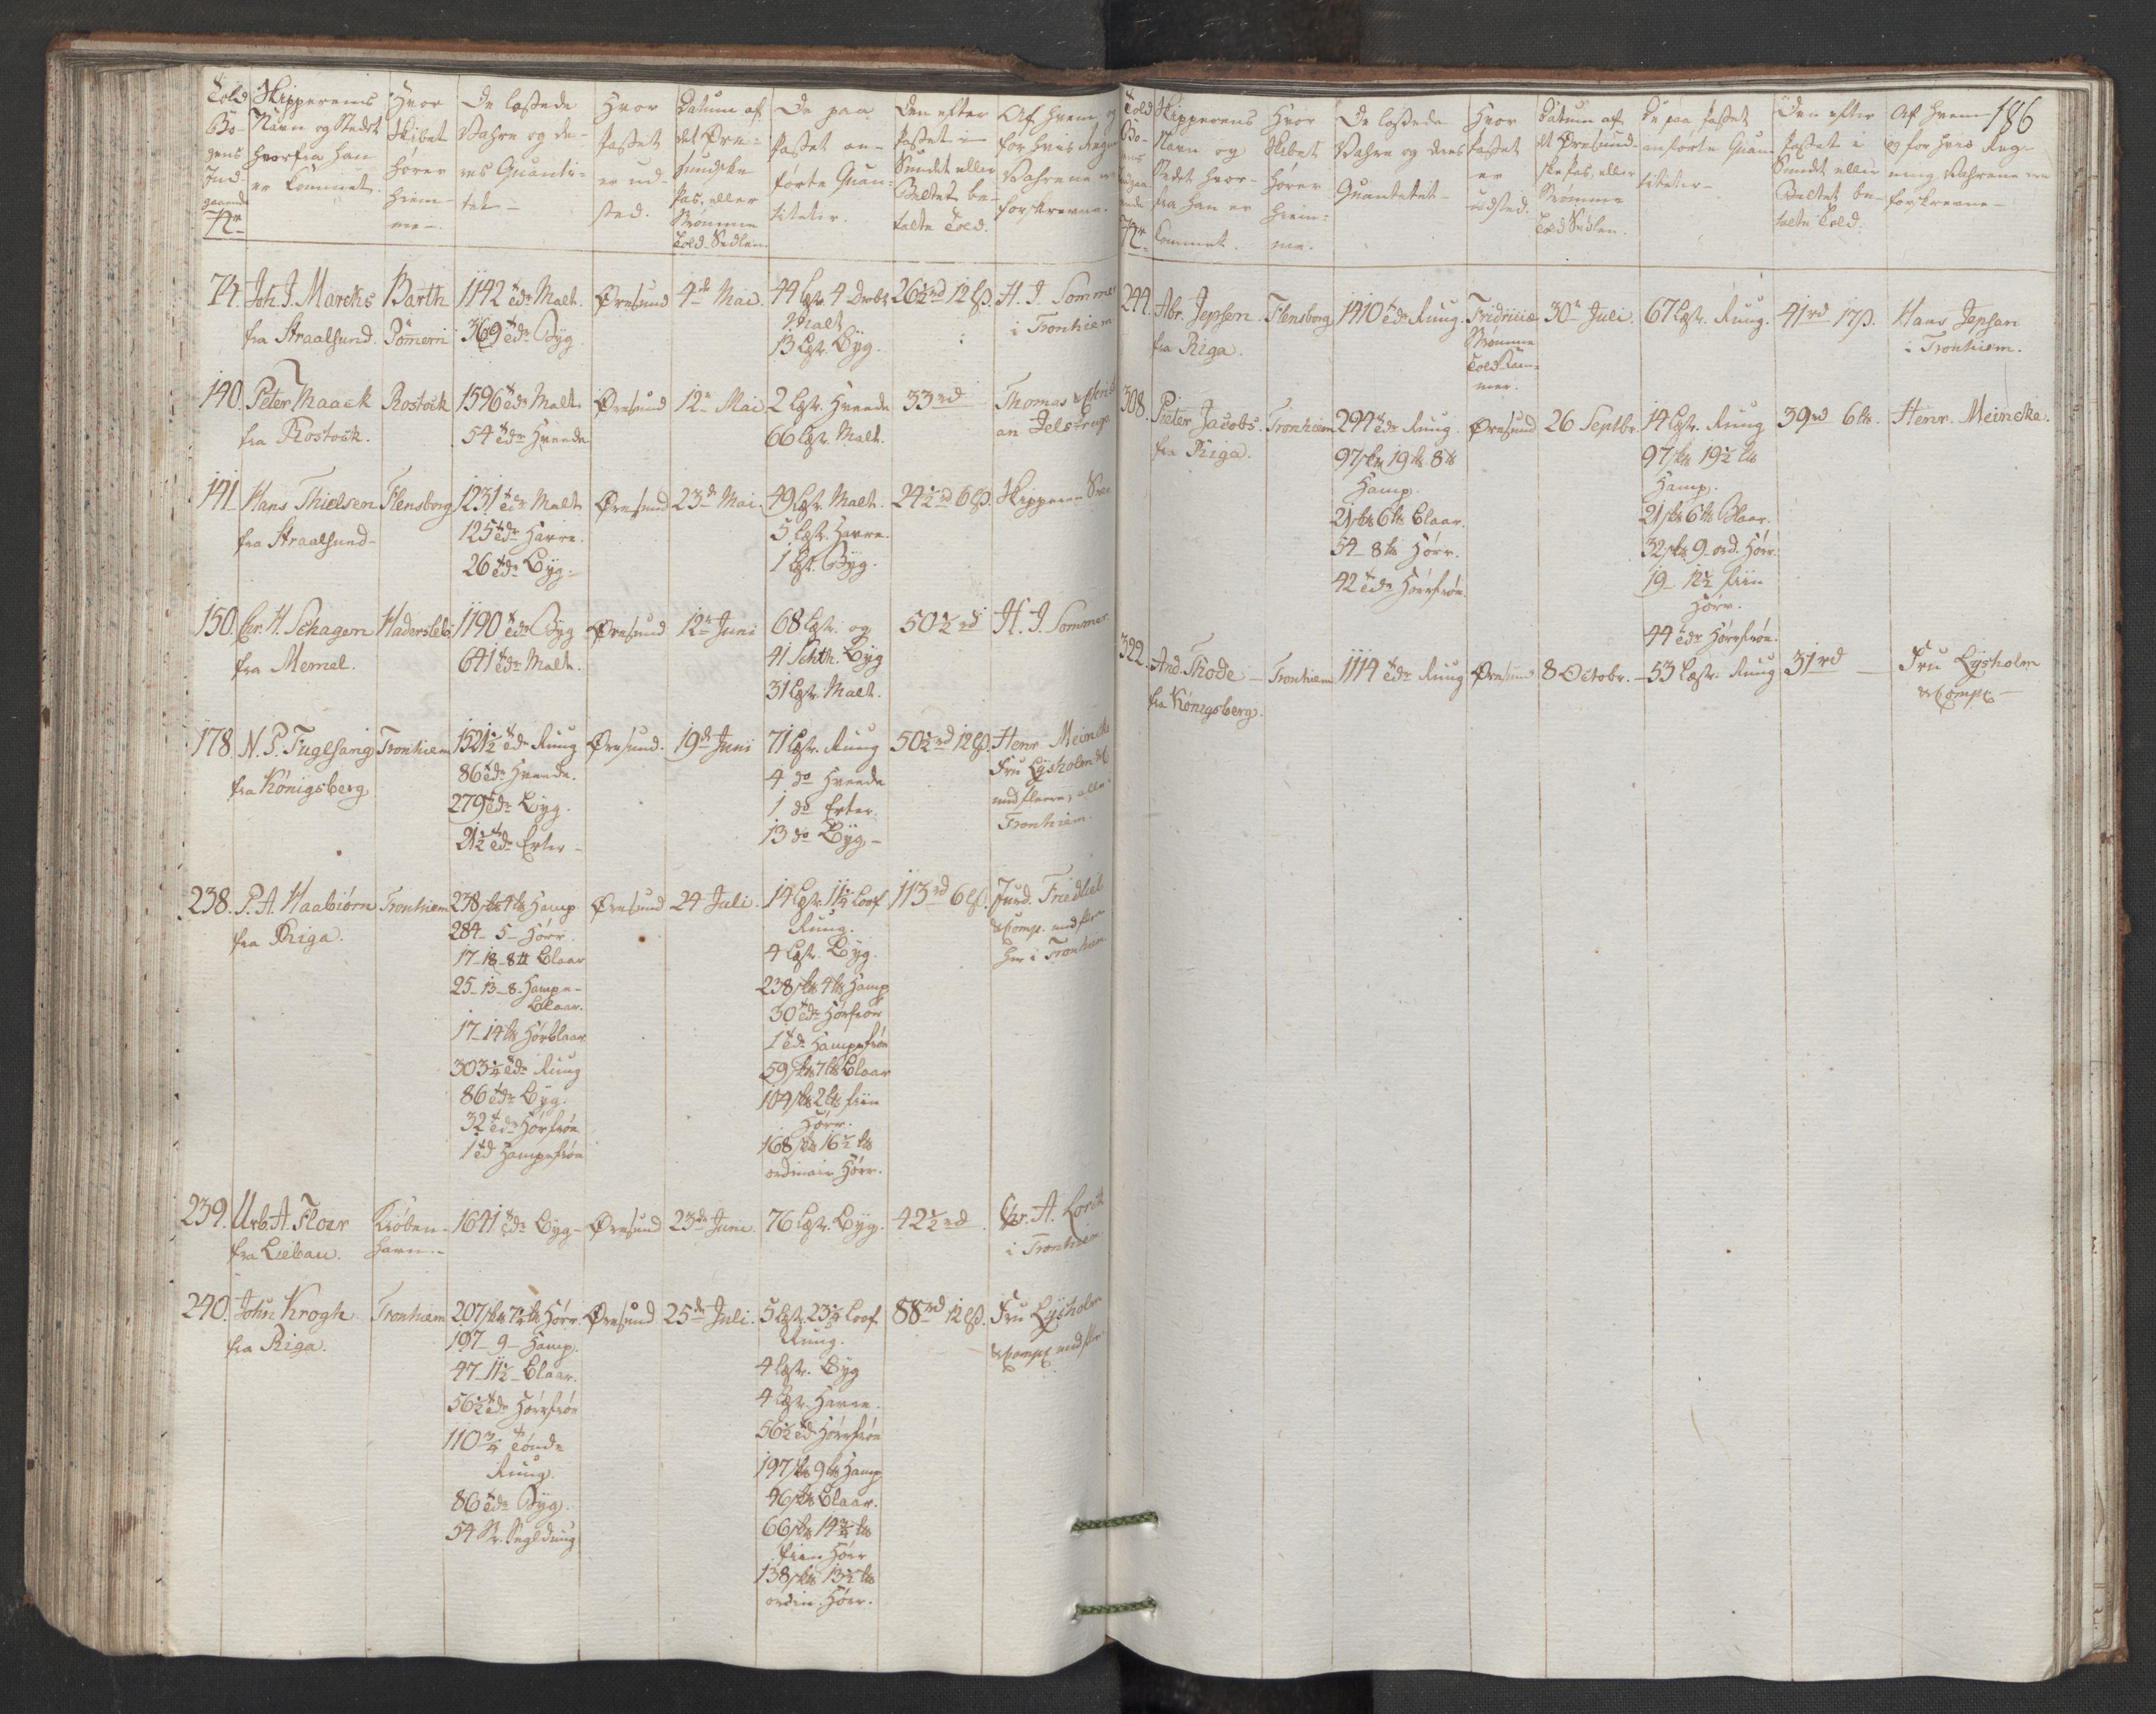 Told
Bo-
gens
Ind
gaaende
No
Skipperens
Navn og Stedet
hvorfra han
er kommet.
Hvor
Skibet
hörer
hiem-
me.
De lossede
Vahre og de-
res Quanti-
tet
Hvor
Passet
er ud-
sted.
Datum af
det Öre-
sundske
Pas, eller
Strömme
Told-Sedlen
De paa
Passet an-
förte Quan-
titeter.
Den efter
Passet i
Sundet eller
Beltet be-
talte Told.
Af hvem og
for hvis Regn
Vahrene ere
forskrevne.
74. Joh. J. Marcks
fra Straalsund.
Barth
Pömern
1142 Tdr Malt.
369 Tdr Byg
Öresund
4de Mai.
44 Læst. 4 Dröbt
Malt
13 Læst. Byg.
26½ rd 12 lß.
H. J. Sommer
i Tronhiem
140. Peter Maack
fra Rostock.
Rostock
1596 Tdr Malt.
54 Tdr Hvede
Öresund
12te Mai
2 Læst. Hvede
66 Læst. Malt.
33 rd
Thomas
an Jelstrup
141. Hans Thielsen
fra Straalsund-
Flensborg
1231 Tdr Malt
125 Tdr Havre.
26 Tdr Byg.
Öresund
23de Mai.
49 Læst. Malt.
5 Læst. Havre.
1 Læst. Byg.
24½ rd 6 lß.
Skipperen
150. Chr. H. Schagen
fra Memel.
Haderslebe
1190 Tdr Byg
641 Tdr Malt.
Öresund
12te Juni
68 Læst. og
41 Schth. Byg
31 Læst. Malt.
50½ rd
H. J. Sommer
178. N. P. Fuglsang
fra Königsberg
Tronhiem
1521½ Tdr Rung
86 Tdr Hvede.
279 Tdr Byg.
21½ Tdr Erter
Öresund.
19de Juni
71 Læst. Rung
4 do Hvede
1 do Erter.
13 do Byg
50½ rd 12 lß.
Henr Meincke
Fru Lysholm & C
med fleere, alle i
Tronhiem.
238. P. A. Haabiörn
fra Riga.
Tronhiem
238 sk 4 lb Hamp
284 - 5 - Hörr.
17 - 18 - 8 tt Blaar
25 - 13 - 8 - Hampe-
Blaar.
17 - 14 lb Hörblaar
303¼ Tdr Rung
86 Tdr Byg.
32 Tdr Hörfröe
1 Td Hampefröe
Öresund
24 Juli.
14 Læst. 11¼ Loof
Rung.
4 Læst. Byg.
238 sk 4 lb Hamp
30 Tdr Hörfröe
1 Td. Hampefröe
59 sk 7 lb Blaar
104 sk 2 lb fiin
Hörr.
168 sk 16½ lb
ordinair Hörr.
113 rd 6 lß.
Jurd. Friedlieb
& Comp. med flere
her i Tronhiem
239. Urb. A. Floer
fra Liebau.
Kiöben-
havn.
1641 Tdr Byg
Öresund
23de Juni.
76 Læst. Byg.
42½ rd
Chr. A. Lorck
i Tronhiem
240. John Krogh
fra Riga.
Tronhiem
207 sk 7½ lb Hörr
197 - 9 - Hamp.
47 - 11½ - Blaar.
56½ Tdr Hörrfröe
110¾ Tönde
Rung.
86 Tdr Byg.
54 St. Segldung
Öresund
25de Juli.
5 Læst. 23¼ Loof
Rung.
4 Læst. Byg
4 Læst. Havre.
56½ Td Hörrfröe
197 sk 9 lb Hamp
46 sk Blaar.
66 sk 14¾ lb
fiin Hörr
138 sk 13½ lb
ordin. Hörr.
88 rd 12 lß.
Fru Lysholm
& Comp. med flere
186
Told
Bo-
No
Skipperens
Navn og
Stedet hvor-
fra han er
kommet.
Hvor
Skibet
hörer
hiem-
me.
De lossede
Vahre og deres
Quantitet
Hvor
Passet
er
udsted.
Datum af
det Öresund-
ske Pas, eller
Strömme
Told Sedlen.
De paa Passet
anförte Quan
titeter
Den efter
Passet i
Sundet eller
Beltet be-
talte Told.
Af hvem
og for hvis Reg-
ning Vahrene ere
forskrevne
244. Abr. Jepsen
fra Riga.
Flensborg
1410 Tdr Rung.
Fridriciæ
Strömme
Told Kam-
mer.
30te Juli.
67 Læst. Rung.
41 rd 17 ß.
Hans Jepsen
i Tronhiem.
308. Pieter Jacobs.
fra Riga.
Tronhiem
294 Tdr Rung.
97 sk 19 lb 8 tt
Hamp.
21 sk 6 lb Blaar.
54 - 8 lb Hörr.
42 Tdr Hörrfröe
Öresund
26 Septbr.
14 Læst. Rung
97 sk 19½ lb
Hamp.
21 sk 6 lb Blaar.
32 sk 9 - ord. Hörr.
19 - 12½ fiin
Hörr.
44 Tdr Hörrfröe.
39 rd 6 lß.
Henr. Meincke.
322. And. Thode
fra Königsberg.
Tronhiem
1114 Tdr Rung
Öresund
8 Octobr.
53 Læst. Rung
31 rd
Fru Lysholm
& Comp.